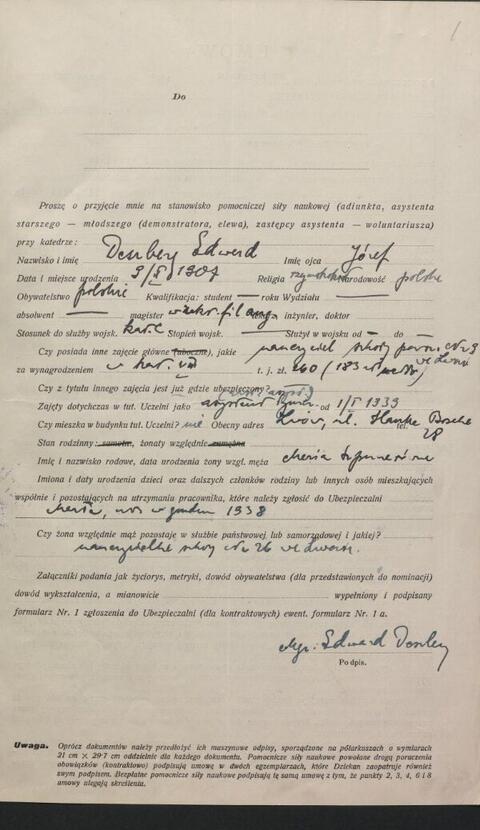 1
Do
Proszę o przyjęcie mnie na stanowisko pomocniczej siły naukowej (adiunkta, asystenta
starszego — młodszego (demonstratora, elewa), zastępcy asystenta — woluntariusza)
przy katedrze:
Nazwisko i imię Edward Imię ojca Józef
Data i miejsce urodzenia 1907 Religia Narodowość polska
Obywatelstwo polskie Kwalifikacja: student — roku Wydziału —
absolwent — magister inżynier, doktor
Stosunek do służby wojsk. kat. C Stopień wojsk. — Służył w wojsku od — do —
Czy posiada inne zajęcie główne (uboczne), jakie nauczyciel szkoły
za wynagrodzeniem t. j. zł. 260
Czy z tytułu innego zajęcia jest już gdzie ubezpieczony?
Zajęty dotychczas w tut. Uczelni jako od 1939
Czy mieszka w budynku tut. Uczelni? nie Obecny adres Lwów, ul. Hauke Bosaka
tel. 28
Stan rodzinny samotn, żonaty względnie zamężna
Imię i nazwisko rodowe, data urodzenia żony wzgl. męża Maria
Imiona i daty urodzenia dzieci oraz dalszych członków rodziny lub innych osób mieszkających
wspólnie i pozostających na utrzymaniu pracownika, które należy zgłosić do Ubezpieczalni
Marta, ur. w grudniu 1938
Czy żona względnie mąż pozostaje w służbie państwowej lub samorządowej i jakiej?
nauczycielka szkoły Nr 26 we Lwowie
Załączniki podania jak życiorys, metryki, dowód obywatelstwa (dla przedstawionych do nominacji)
dowód wykształcenia, a mianowicie wypełniony i podpisany
formularz Nr. 1 zgłoszenia do Ubezpieczalni (dla kontraktowych) ewent. formularz Nr. 1 a.
Mgr. Edward
Podpis.
Uwaga. Oprócz dokumentów należy przedłożyć ich maszynowe odpisy, sporządzone na półarkuszach o wymiarach
21 cm × 29·7 cm oddzielnie dla każdego dokumentu. Pomocnicze siły naukowe powołane drogą poruczenia
obowiązków (kontraktowo) podpisują umowę w dwóch egzemplarzach, które Dziekan zaopatruje również
swym podpisem. Bezpłatne pomocnicze siły naukowe podpisują tę samą umowę z tym, że punkty 2, 3, 4, 6 i 8
umowy ulegają skreśleniu.